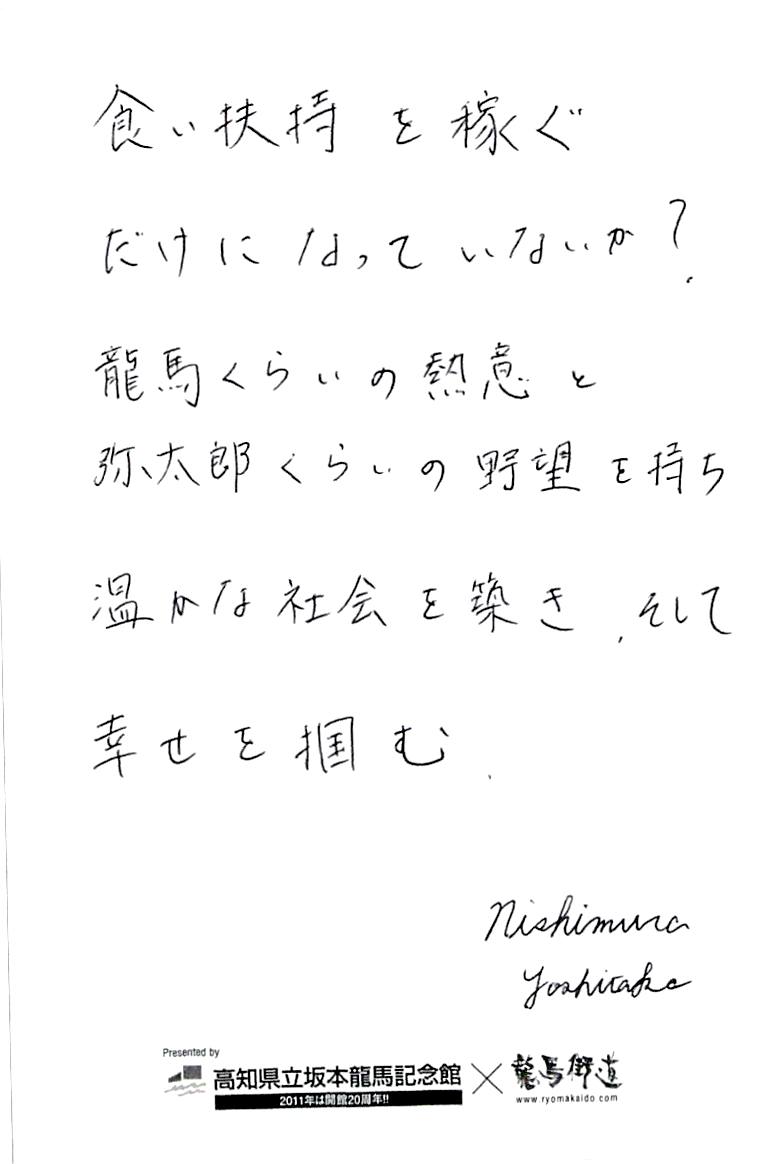 食い扶持を稼ぐ
だけになっていないか?
龍馬くらいの熱意と
弥太郎くらいの野望を持ち
温かな社会を築き、そして
幸せを掴む.
Nishimura
Yoshitake
Presented by
高知県立坂本龍馬記念館×龍馬街道
2011年は開館20周年!!
www.ryomakaido.com